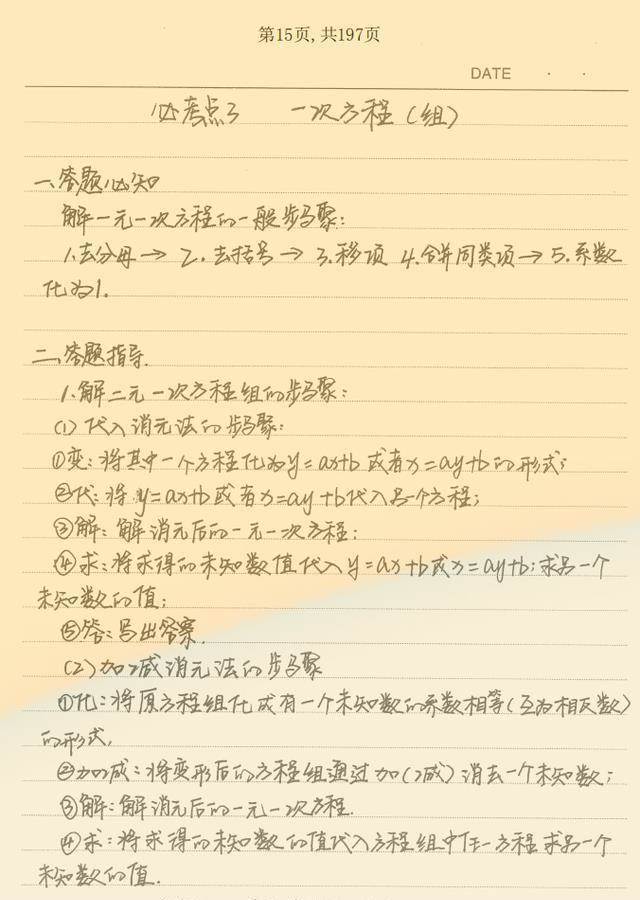 第15页,共197页
DATE · ·
必考点3 一次方程(组)
一、答题必知
解一元一次方程的一般步骤:
1.去分母→ 2.去括号→ 3.移项 4.合并同类项→ 5.系数
化为1.
二、答题指导.
1.解二元一次方程组的步骤:
(1)代入消元法的步骤:
①变:将其中一个方程化为y=ax+b或者x=ay+b的形式;
②代:将y=ax+b或者x=ay+b代入另一个方程;
③解:解消元后的一元一次方程;
④求:将求得的未知数值代入y=ax+b或x=ay+b;求另一个
未知数的值;
⑤答:写出答案.
(2)加减消元法的步骤
①化:将原方程组化成有一个未知数的系数相等(互为相反数)
的形式.
②加减:将变形后的方程组通过加(减)消去一个未知数;
③解:解消元后的一元一次方程.
④求:将求得的未知数的值代入方程组中任一方程求另一个
未知数的值.